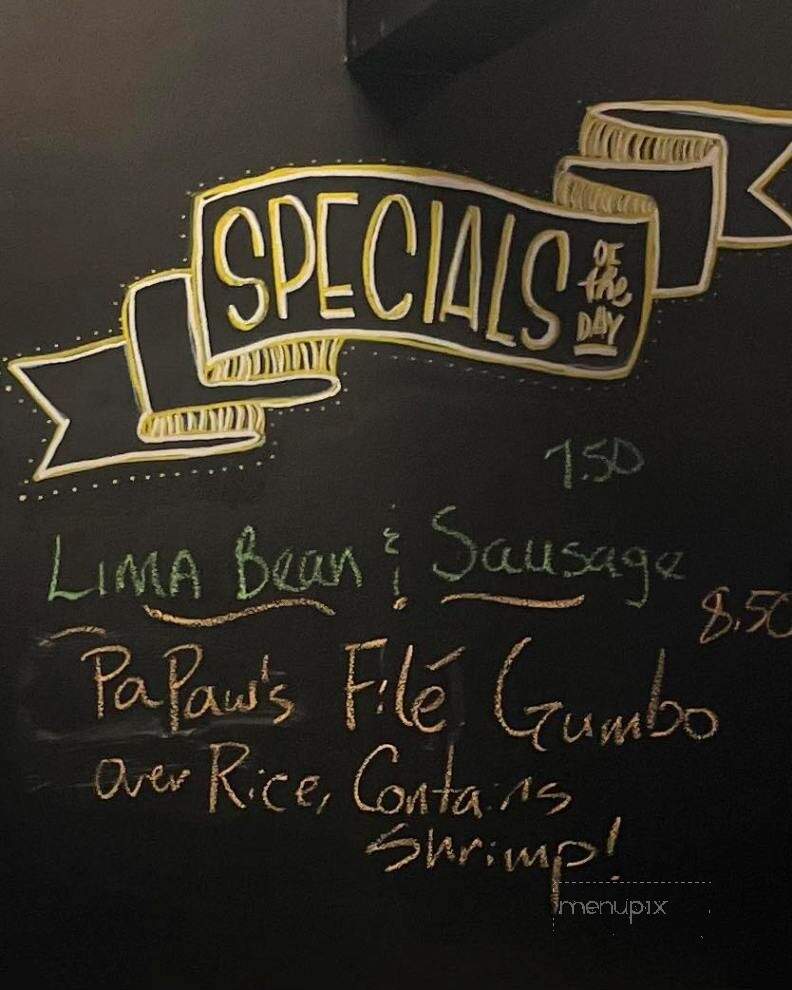 SPECIALS OF the DAY
7.50
LIMA Bean & Sausage
8.50
PaPaw's Filé Gumbo
over Rice, Contains
Shrimp!
menupix